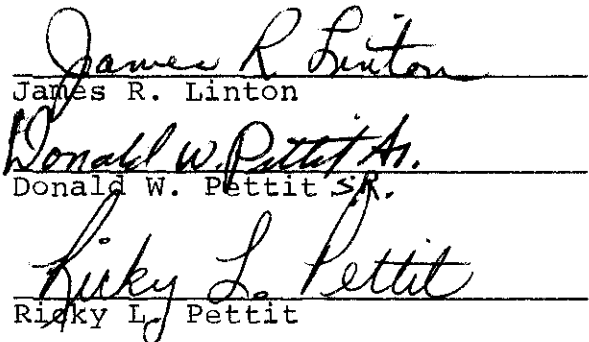 James R Linton
James R. Linton
Donald W. Pettit Sr.
Donald W. Pettit SR.
Ricky L. Pettit
Ricky L. Pettit